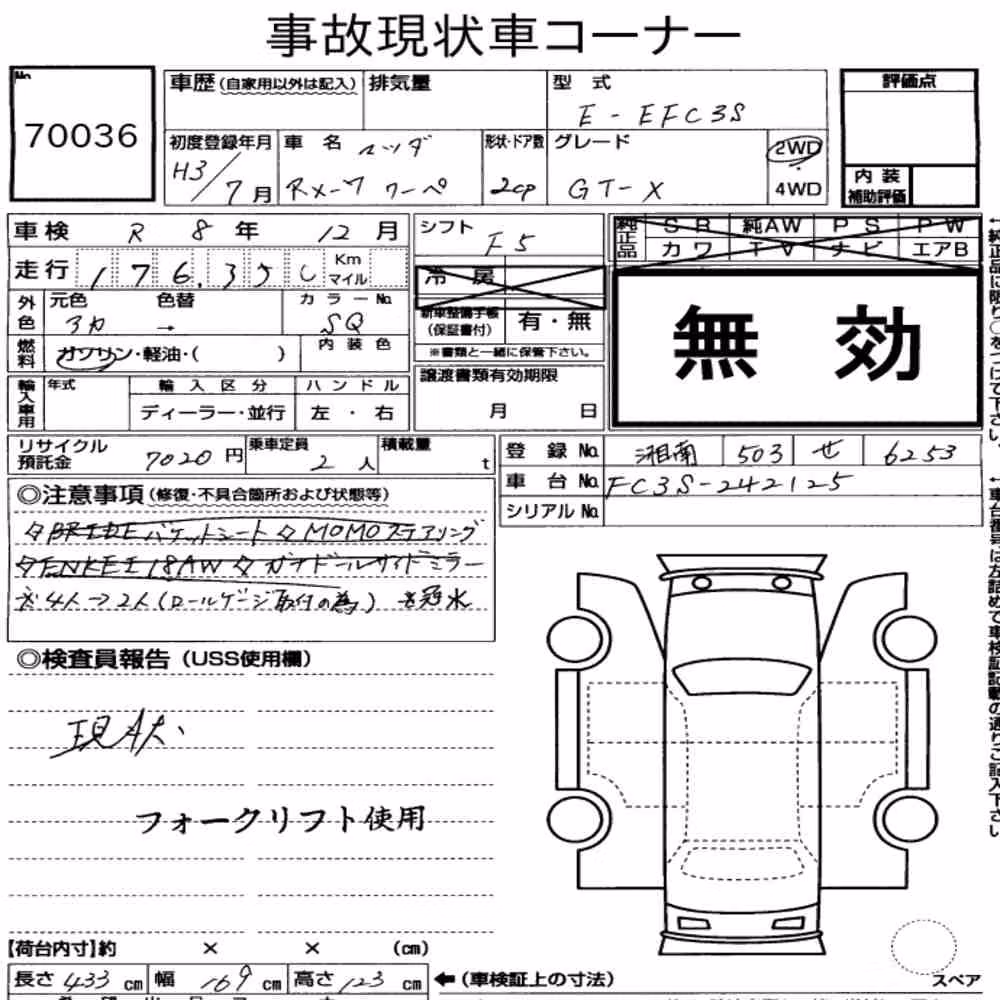 事故現状車コーナー
No. 70036
車歴 (自家用以外は記入) 排気量 型式 E-EFC3S
初度登録年月 H3/7月
車名 マツダ RX-7 クーペ
形状・ドア数 2cp
グレード GT-X
2WD
4WD
評価点
内装補助評価
車検 R 8年 12月
シフト F5
純正品 SR 純AW PS PW
カワ TV ナビ エアB
走行 176,350 Km マイル
冷房
外色 元色 アカ 色替 → カラーNo. SQ
新車整備手帳 (保証書付) 有・無
内装色
燃料 ガソリン・軽油・( )
※書類と一緒に保管下さい。
無効
輸入車用 年式 輸入区分 ハンドル
ディーラー・並行 左・右
譲渡書類有効期限
月 日
リサイクル預託金 7020円 乗車定員 2人 積載量 t
登録No. 湘南 503 せ 6253
車台No. FC3S-242125
シリアルNo.
◎注意事項 (修復・不具合箇所および状態等)
☆BRIDEバケットシート ☆MOMOステアリング
☆ENKEI 18AW ☆ガナドールサイドミラー
※4人→2人(ロールゲージ取付の為) ※冠水
◎検査員報告 (USS使用欄)
現状
フォークリフト使用
【荷台内寸】約 × × (cm)
長さ 433 cm 幅 169 cm 高さ 123 cm
←(車検証上の寸法)
スペア
←純正品に限り○をつけて下さい。
←車台番号は左詰めで車検証記載の通りご記入下さい